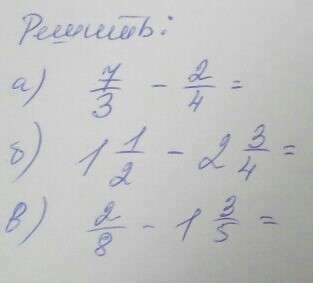 Решить:
а) 7/3 - 2/4 =
б) 1 1/2 - 2 3/4 =
в) 2/8 - 1 3/5 =